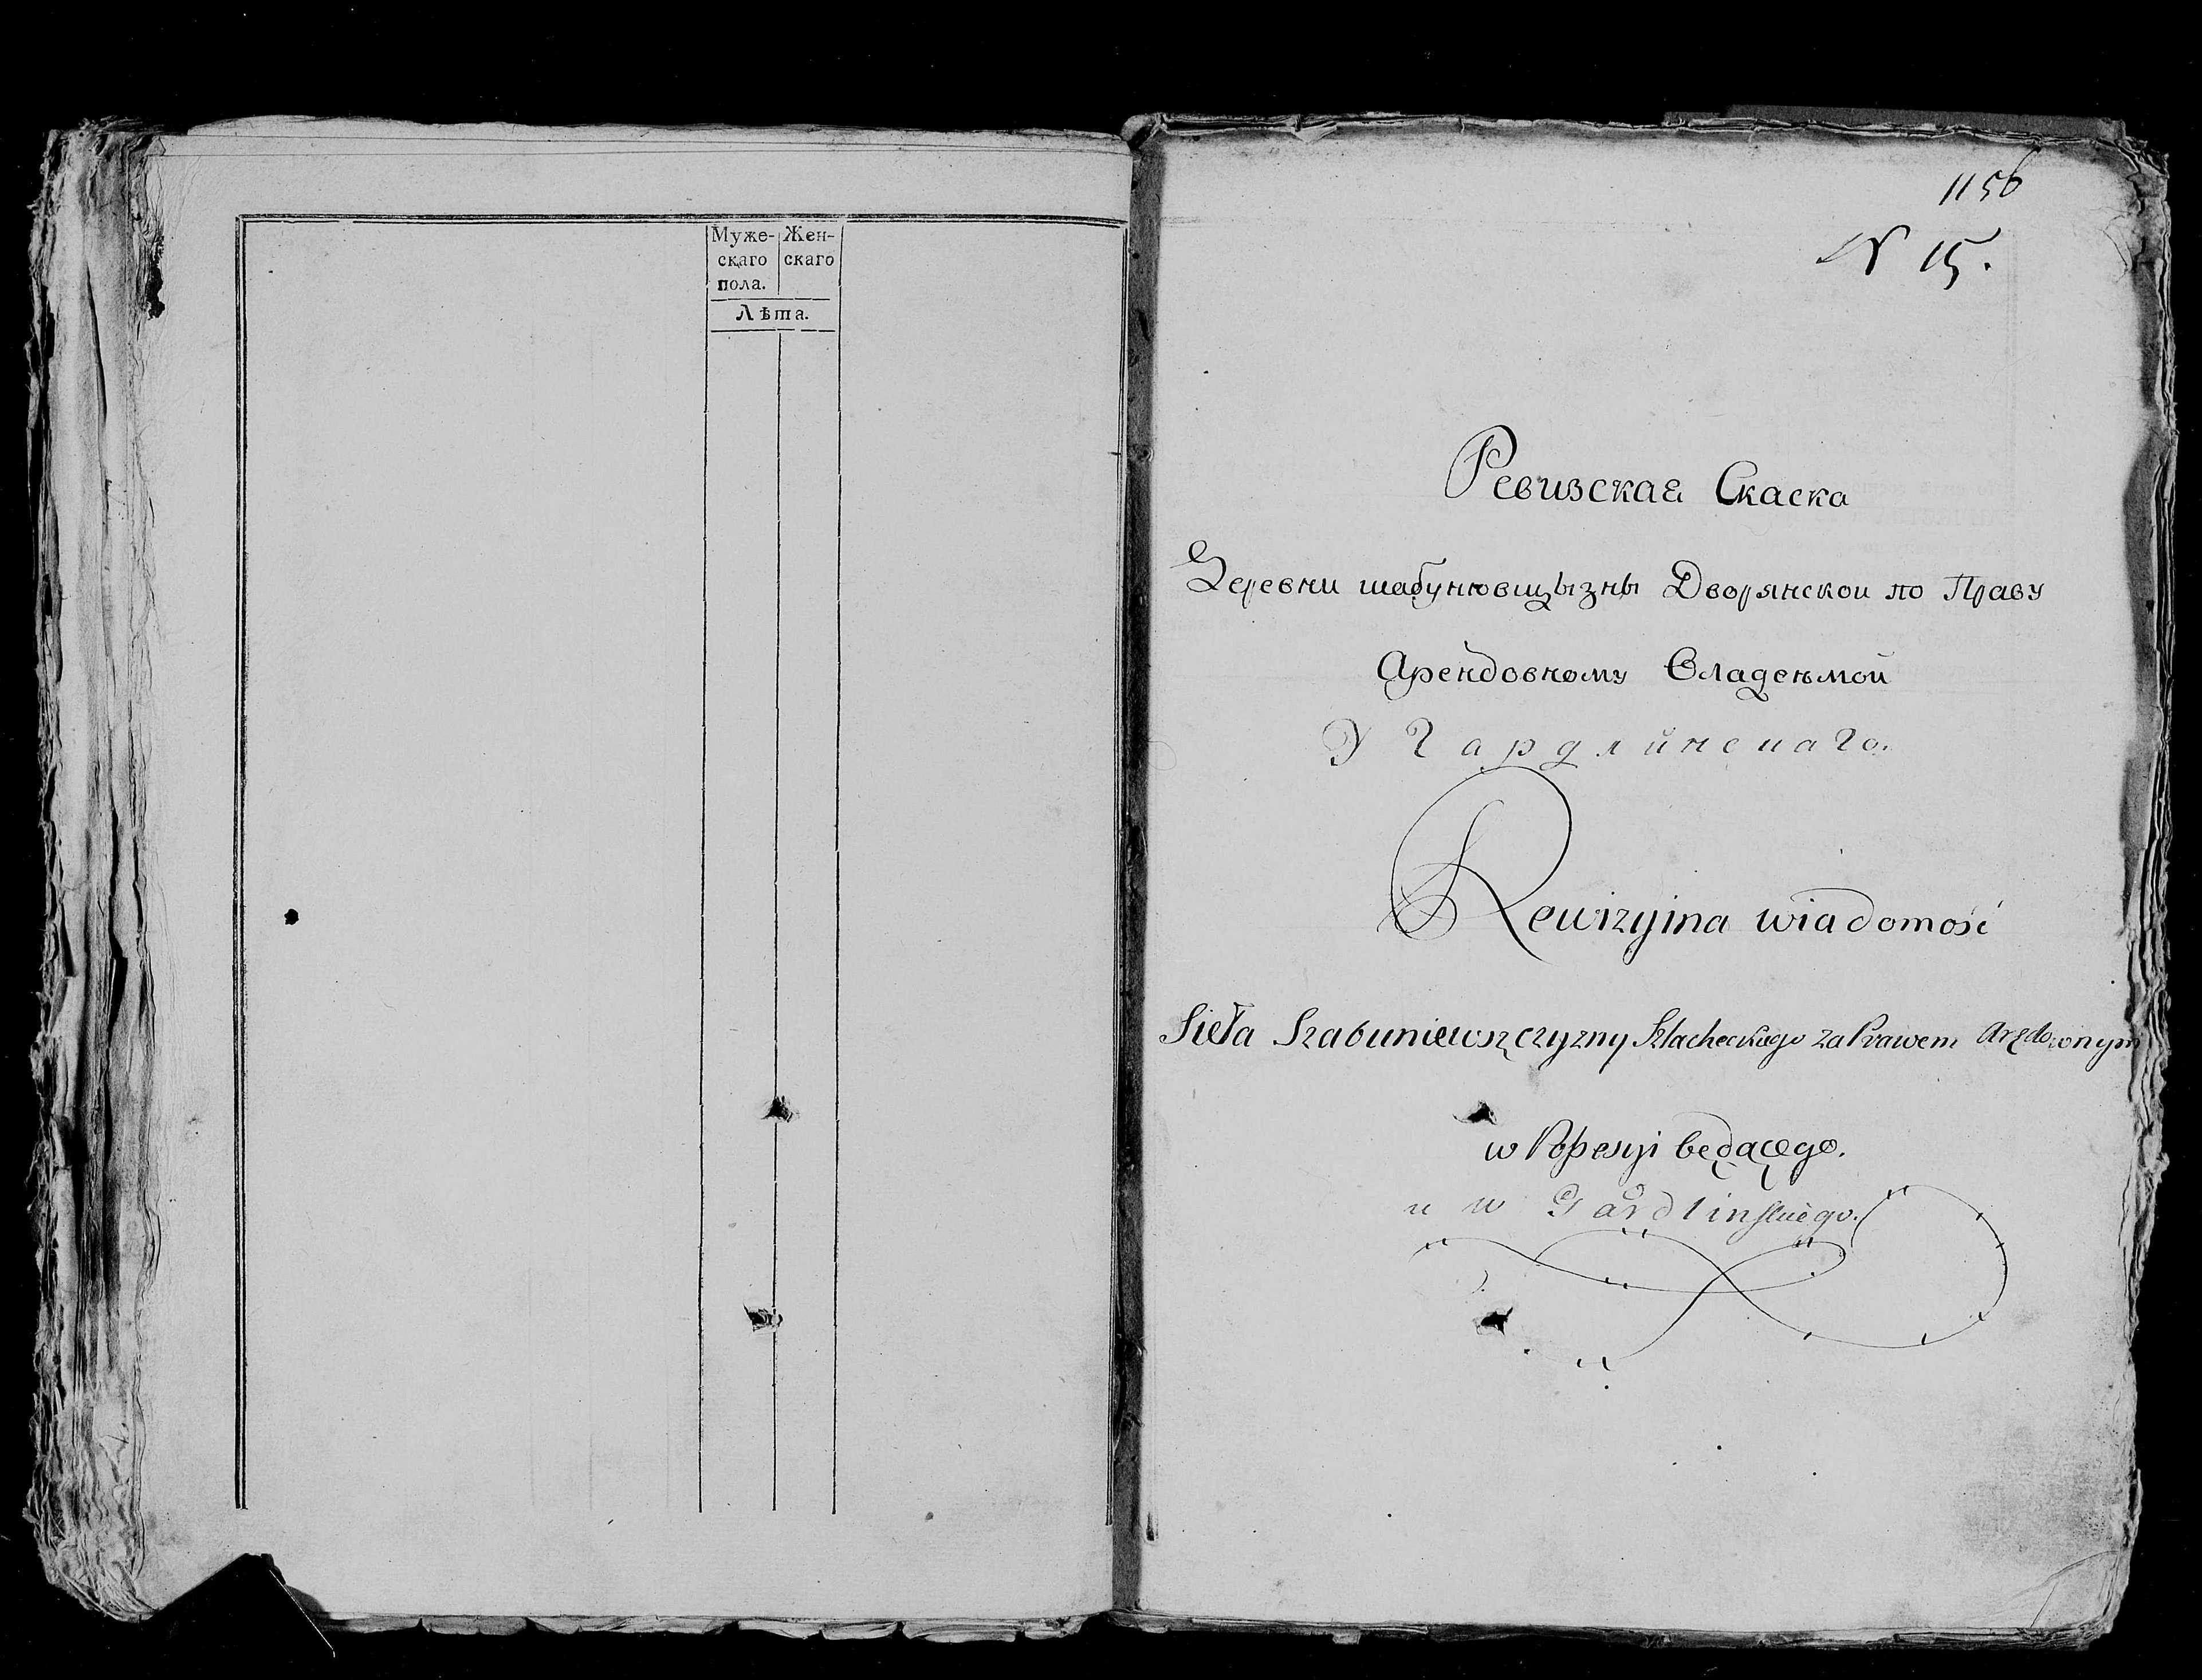 Муже- Жен-
скаго скаго
пола.
Лѣта.
1156
N 15.
Ревизская Скаска
Деревни шабунювщызны Дворянскои по Праву
Арендовному Владенмой
У Гардлинскаго.
Rewizyina wiadomość
Sieła Szabuniewszczyzny Szlacheckiego za Prawem Arędownym
w Possesyi będącego.
u W Gardlinskiego.